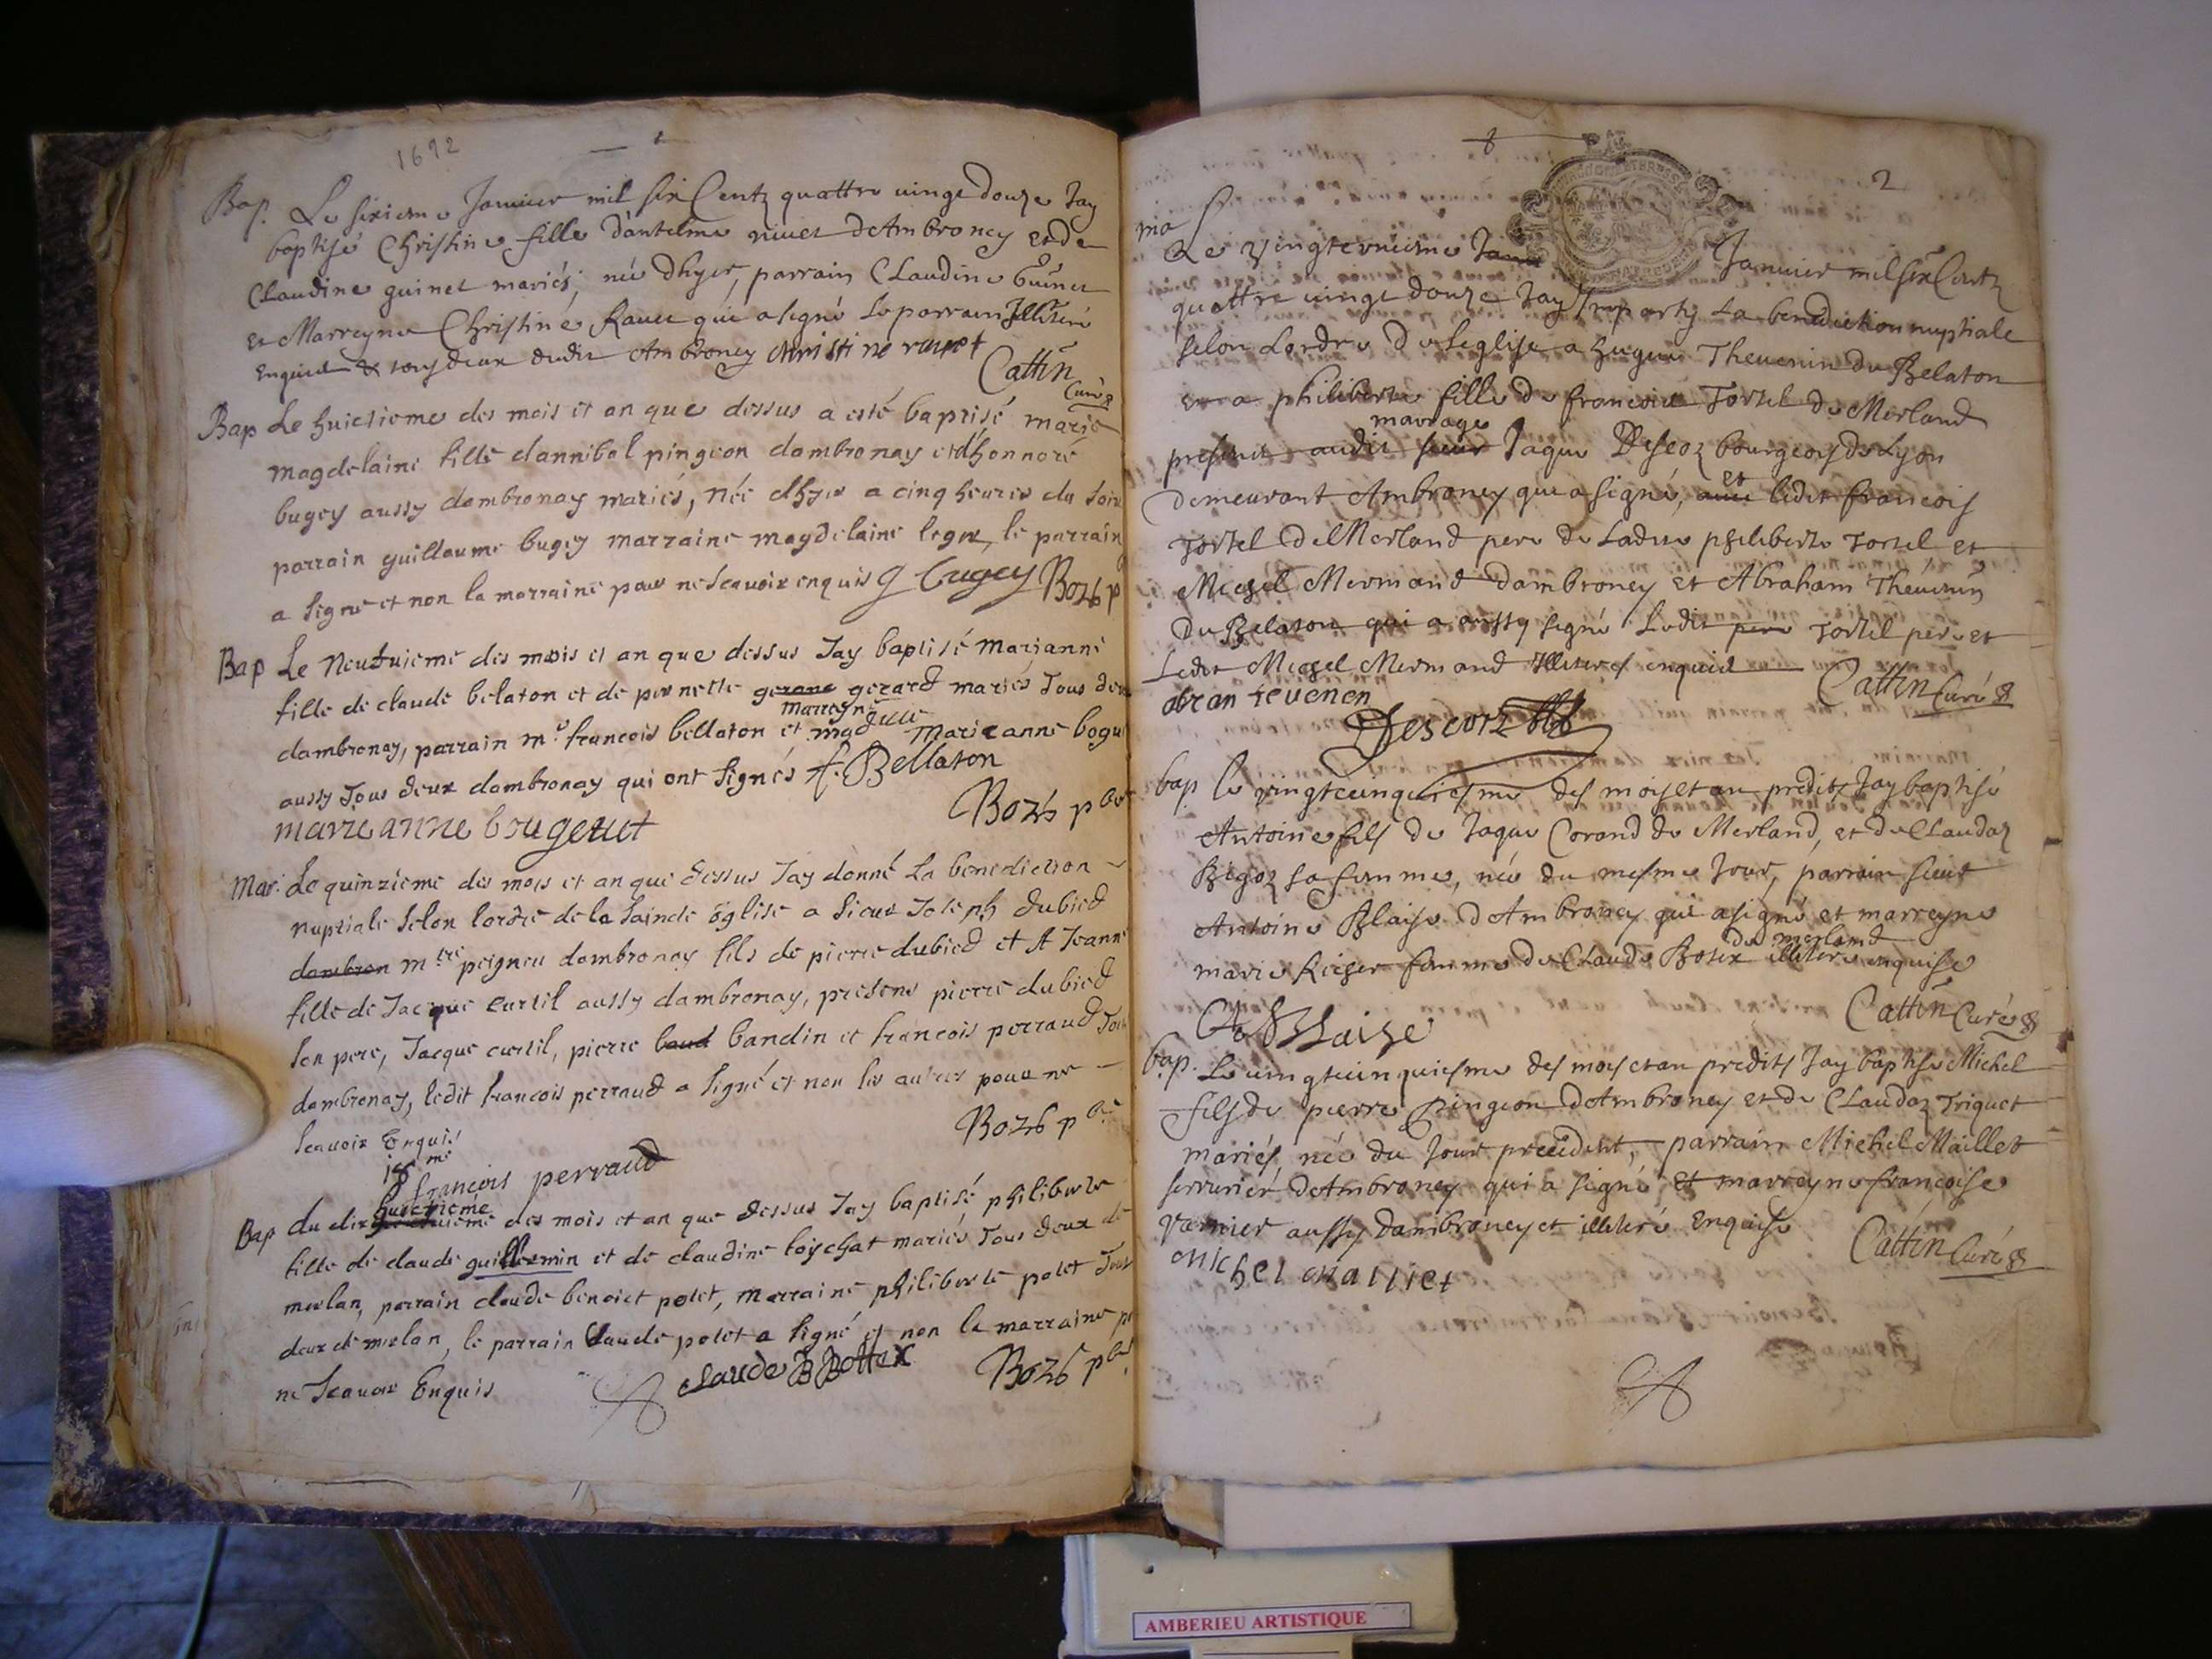 1692
Bap. Le sixiesme Januier mil six Centz quattre uingt douze Jay
baptisé Christine fille d'antelme niuet dAmbroney et de
Claudine guinet mariés, née dhyer, parrain Claudine Guinet
et Marreyne Christine Rauet qui a signé Le parrain Illiteré
enquis & tous deux dudit Ambroney christine rauet
Cattin
Curé
Bap Le huictieme des mois et an que dessus a esté baptisé marie
magdelaine fille dannibal pingeon dambronay et d'honnoré
bugey aussy dambronay mariés, née dhyer a cinq heures du soir
parrain guillaume bugey marraine magdelaine legre, le parrain
a signé et non la marraine pour ne scauoir enquis g bugey Bozb p
Bap Le Neufuieme des mois et an que dessus Jay baptisé marianne
fille de claude belaton et de pernette gerard mariés Tous deux
marreyne
dambronay, parrain me francois bellaton et madlle Marieanne bogu
aussy Tous deux dambronay qui ont signés f. Bellaton
marieanne bougerut
Bozb pbre
Mar. Le quinzieme des mois et an que dessus Jay donné La benediction
nuptiale selon lordre de la saincte église a sieur Joseph dubied
dambron mtre peigneu dambronay fils de pierre dubied et A Jeanne
fille de Jacque curtil aussy dambronay, presens pierre dubied
son pere, Jacque curtil, pierre baud bandin et francois perraud Tous
dambronay, ledit francois perraud a signé et non les autres pour ne
scauoir Enquis
Bozb pbre
18me
francois perraud
huictiéme
Bap du dix des mois et an que dessus Jay baptisé philiberte
fille de claude guillermin et de claudine loychat mariés Tous deux de
merlan, parrain claude benoict potet, marraine philiberte potet Tous
deux de merlan, le parrain Claude potet a signé et non la marraine p
ne scauoir Enquis
claude B Bottex
Bozb pbre
2
ma Le vingteunieme Janu Januier mil six Centz
quattre uingt douze Jay Imparty La benediction nuptiale
selon Lordre de Leglise a hugue Theuenin du Belaton
et a philiberte fille de francois Tortel de Merland
mariage
present audit sieur Jaque Descoz bourgeois de Lyon
demeurant Ambroney que a signé, et ledit francois
Tortel de Merland pere de Ladite philiberte Tortel et
Michel Mermand dambroney et Abraham Theuenin
du Belaton qui a aussy signé Ledit pere Tortel pere et
Ledit Michel Mermand Illiteres enquis
Cattin Curé
abran teuenen
Descotz
bap. le vingtcinquiesme des mois et an predits Jay baptisé
Antoine fils de Jaque Corand de Merland, et de Claudaz
Bigoz sa femme, née du mesme Jour, parrain sieur
Antoine Blaise dAmbroney qui a signé et marreyne
de merland
marie Richer femme de Claude Botex illitere enquise
Cattin Curé
A Blaise
bap. Le uingtcinquiesme des mois et an predits Jay baptise Michel
fils de pierre Pingeon dAmbroney et de Claudaz Triquet
mariés née du Jour precedent, parrain Michel Maillet
serrurier dAmbroney qui a signé, et marreyne francoise
Varnier aussy dambroney et illiteré enquise
Cattin Curé
Michel Malliet
AMBERIEU ARTISTIQUE